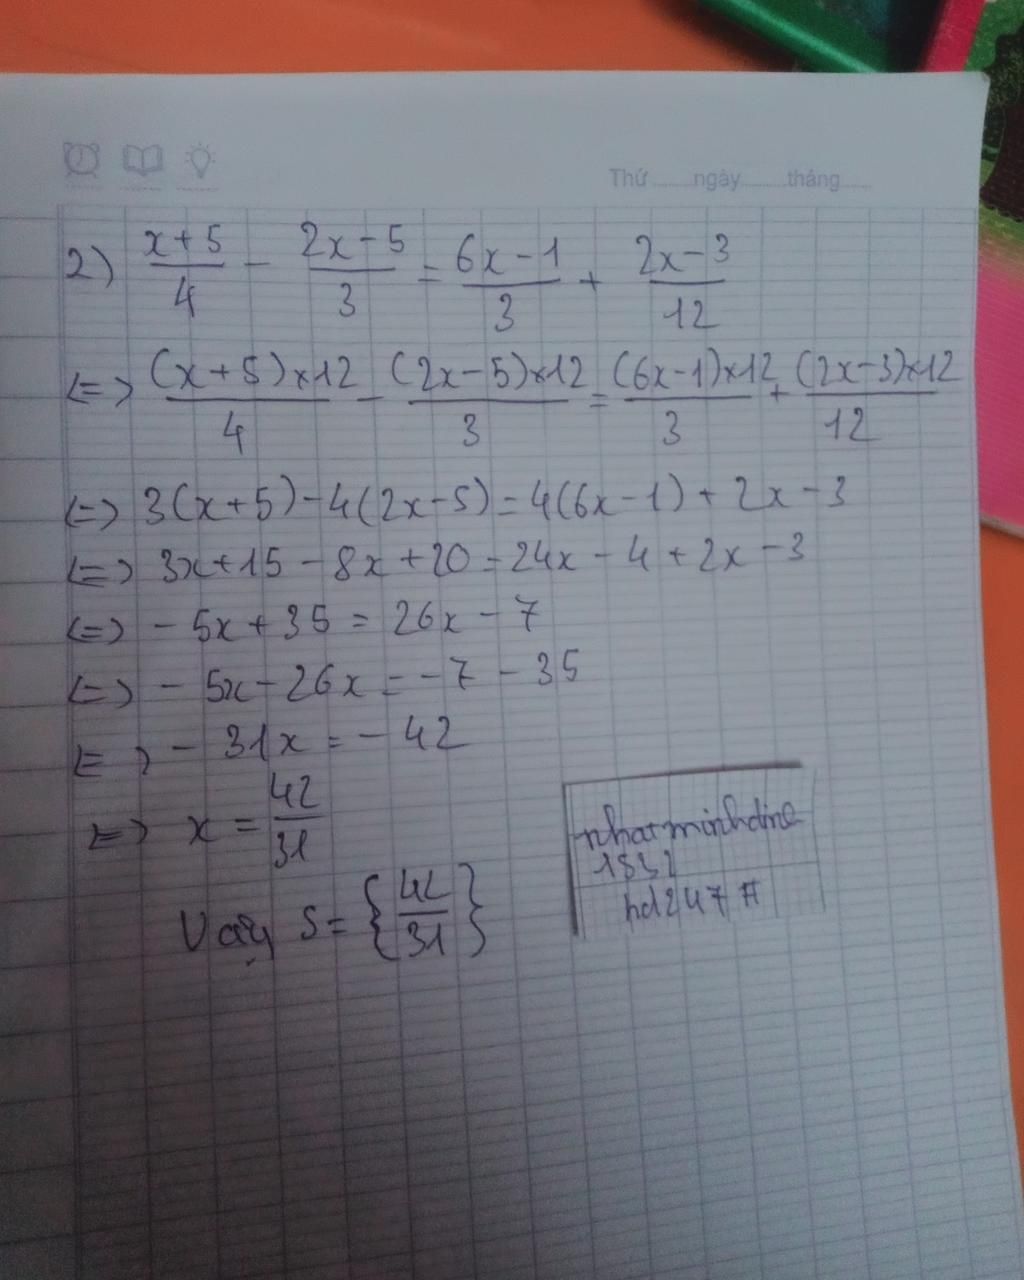 Thứ......ngày......tháng......
2) (x+5)/4 - (2x-5)/3 = (6x-1)/3 + (2x-3)/12
<=> ((x+5)×12)/4 - ((2x-5)×12)/3 = ((6x-1)×12)/3 + ((2x-3)×12)/12
<=> 3(x+5)-4(2x-5)=4(6x-1)+2x-3
<=> 3x+15-8x+20=24x-4+2x-3
<=> -5x+35=26x-7
<=> -5x-26x=-7-35
<=> -31x=-42
<=> x=42/31
Vậy S={42/31}
hd247#